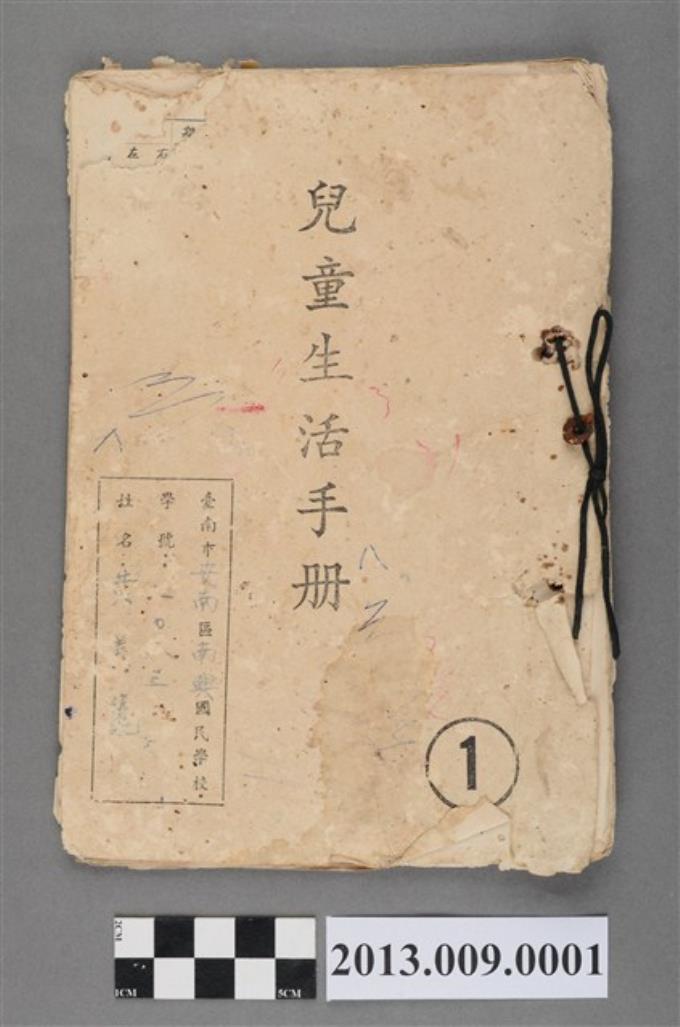 左 右
兒童生活手册
臺南市安南區南興國民學校
學號：一〇八三
姓名：黃
1
2CM
1CM
5CM
2013.009.0001